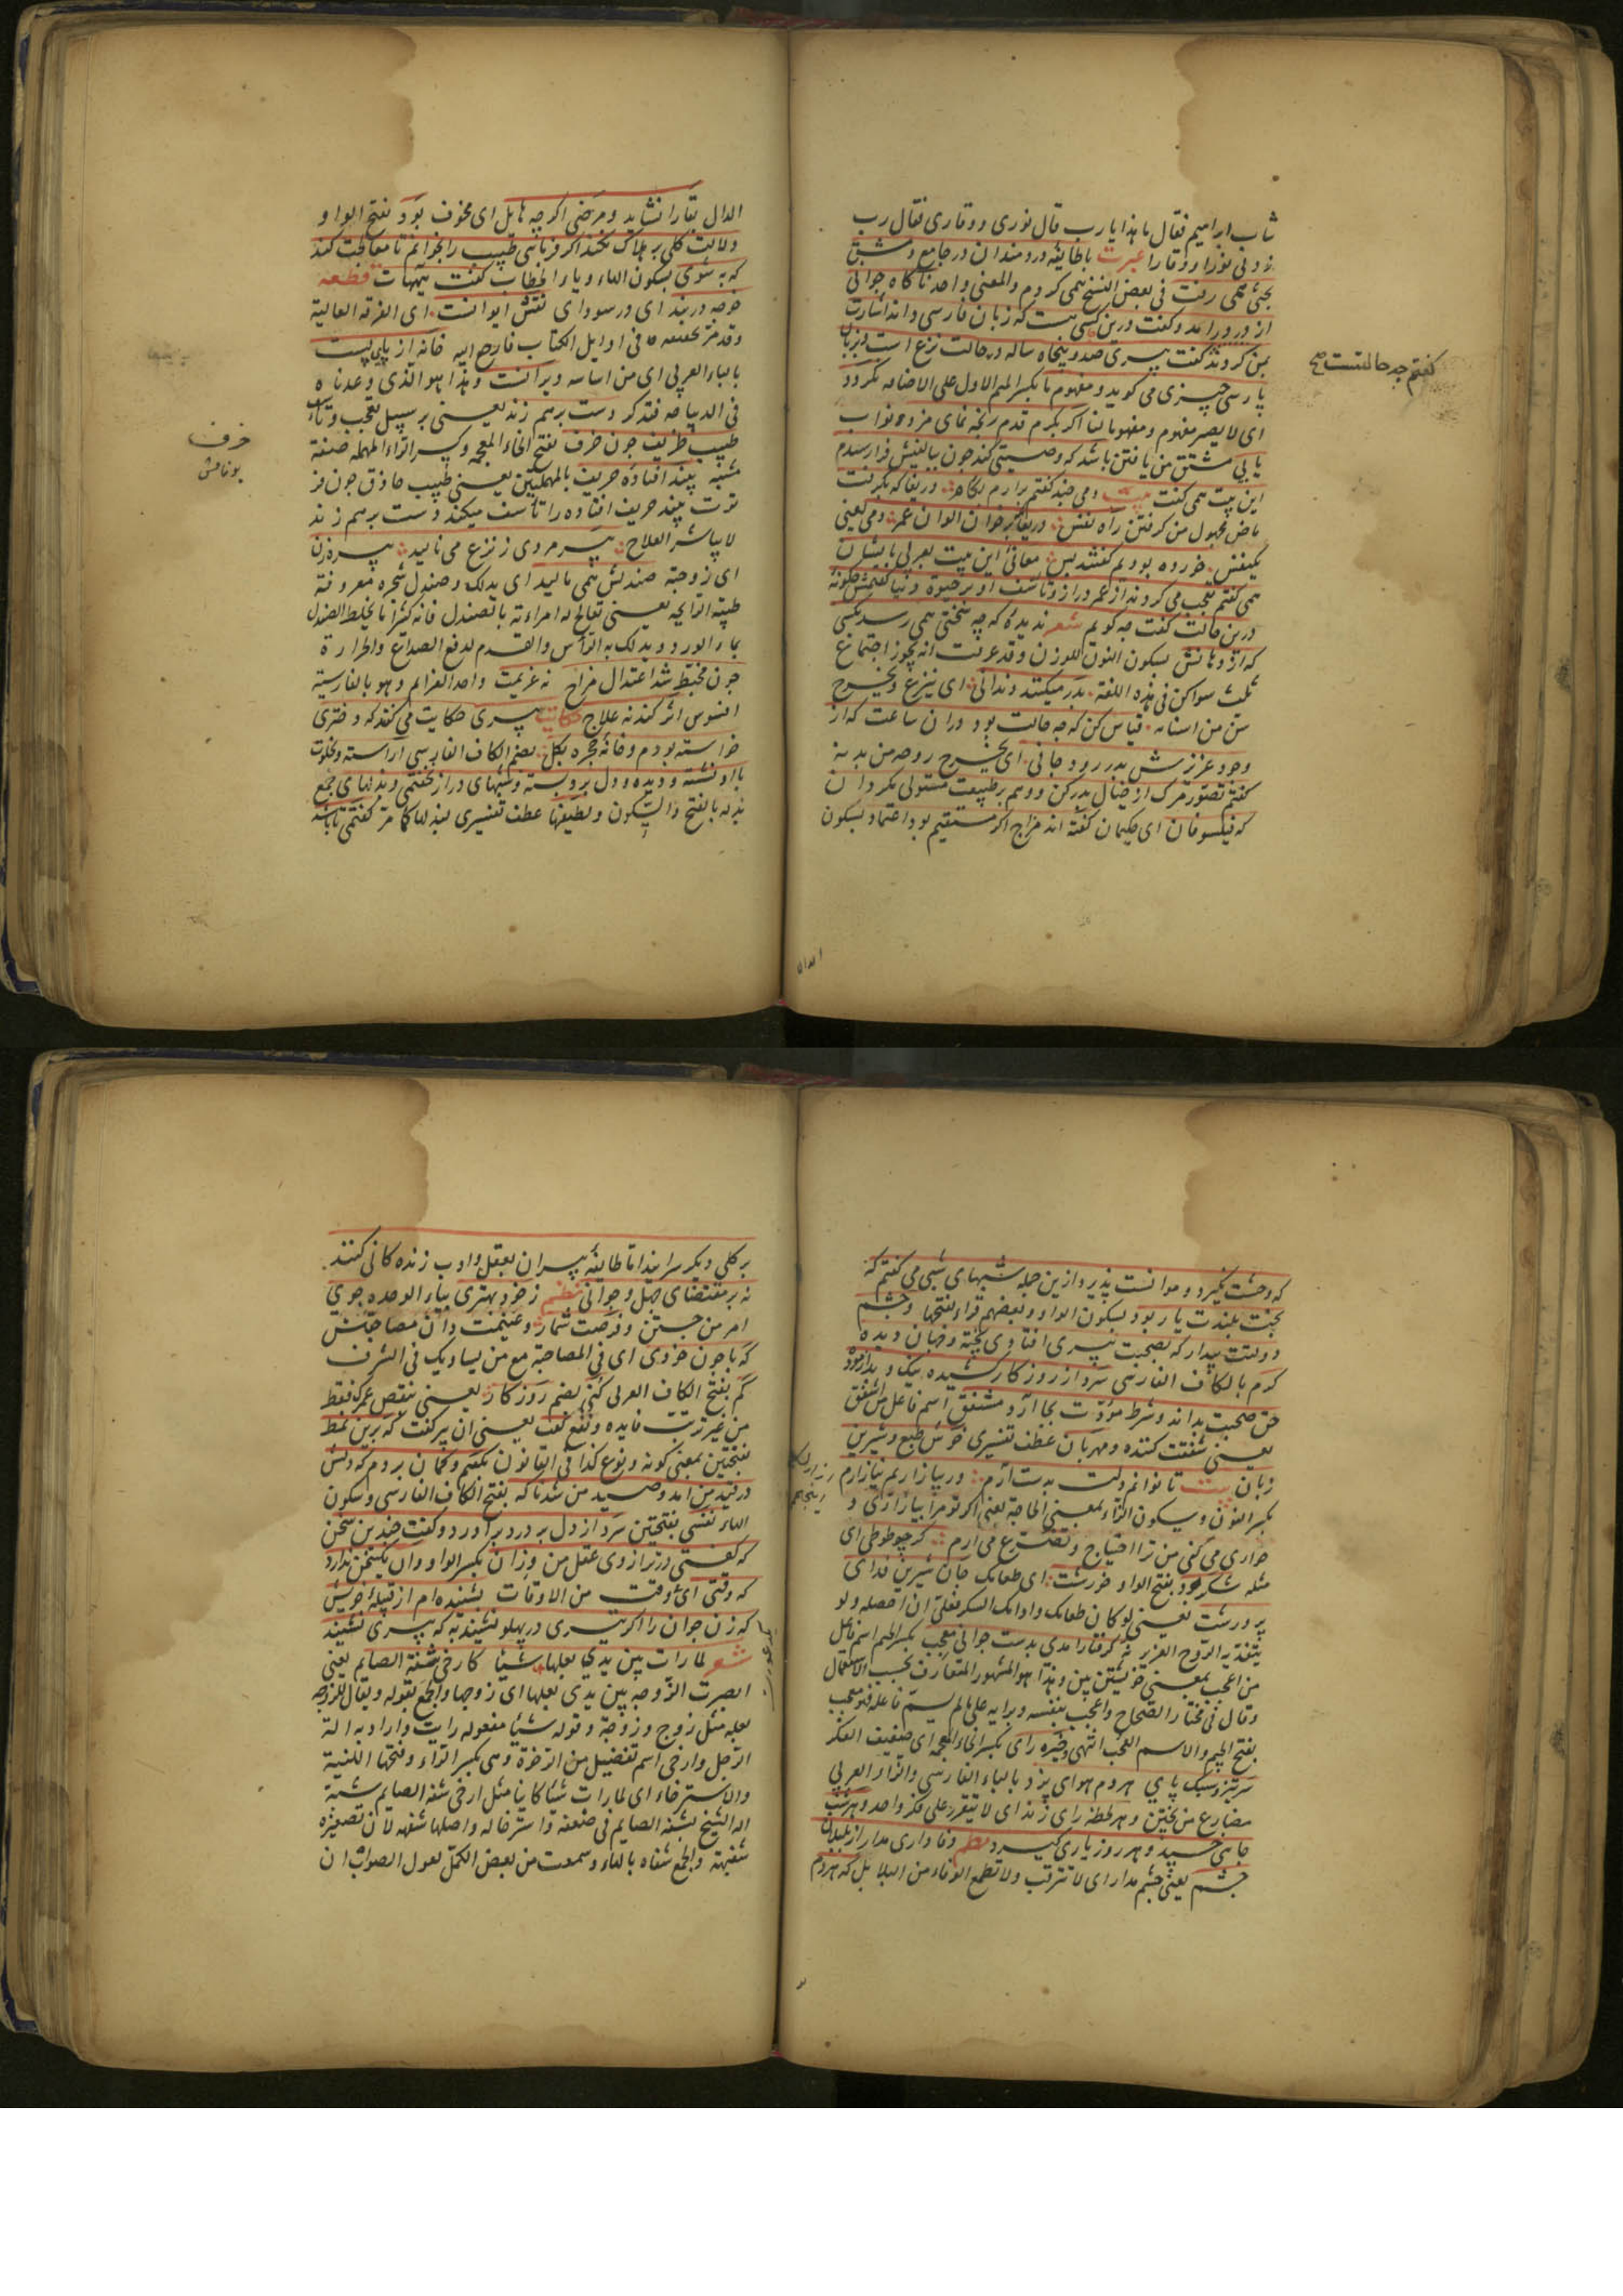 شاب ابراهيم فقال ما هذا يا رب قال نوری ووقاری فقال رب
زدنی نورا ووقارا عبرت با طائفه دردمندان در جامع دمشق
بحثی همی رفت فی بعض النسخ همی کردم والمعنی واحد ناکاه جوانی
از در درامد وکفت درین کسی هست که زبان فارسی داند اشارت
بمن کردند کفت پیری صد وپنجاه ساله در حالت نزع است وبزبان
پارسی چیزی می کوید ومفهوم ما بکسر المیم الاول علی الاضافه نکردد
کفتم چه حالتست صح
ای لا یصیر مفهوم ومفهومنا اکر بکرم قدم رنجه نمای مزد وثواب
یابی مشتق من یافتن باشد که وصیتی کند چون ببالینش فرا رسیدم
این بیت همی کفت بیت دمی چند کفتم برارم بکام دریغا که بکرفت
ماض مجهول من کرفتن راه نفس دریغا که بر خوان الوان عمر دمی یعنی
یکنفس خورده بودیم کفتند بس معانئ این بیت بعربی با ایشان
همی کفتم تعجب می کردند از عمر دراز وتاسف او بر حیوة دنیا کفتمش چکونه
درین حالت کفت چه کویم شعر ندیدهٔ که چه سختی همی رسد بکسی
که از دهانش بسکون النون للوزن وقد عرفت انه یجوز اجتماع
ثلث سواکن فی هذه اللغة بدر میکنند دندانی ای ینزع ویخرج
سن من اسنانه قیاس کن که چه حالت بود دران ساعت که از
وجود عزیزش بدر رود جانی ای یخرج روحه من بدنه
کفتم تصور مرک از خیال بدر کن ووهم بر طبیعت مستولی مکردان
که فیلسوفان ای حکیمان کفته اند مزاج اکر مستقیم بود اعتماد بسکون
الدال بقا را نشاید ومرضی اکر چه هایل ای مخوف بود بفتح الواو
دلالت کلی بر هلاک نکند اکر فرمائی طبیب را بخوانم تا معالجت کند
که به شوی بسکون الهاء ویاء الخطاب کفت هیهات قطعه
خوجه در بند ای در سودای نقش ایوانست ای الغرفة العالیة
وقد مر تحقیقه فی اوایل الکتاب فارجع الیه خانه از پای پست
بالباء العربی ای من اساسه ویرانست وهذا هو الذی وعدناه
فی الدیباجه فتذکر دست برهم زند یعنی بر سبیل تعجب وتاسف
طبیب ظریف چون خرف بفتح الخاء المعجمه وکسر الراء المهمله صفة
خرف
بوناعش
مشبه بیند افتاده حریف بالمهملتین یعنی طبیب حاذق چون فر
توت بیند حریف افتاده را تاسف میکند ودست برهم زند
لا یباشر العلاج پیرمردی ز نزع می نالید پیرزن
ای زوجته صندلش همی مالید ای یدلک وصندل شجره معروفة
طیبة الرایحه یعنی تعالج له امراءته بالصندل فانه کثیرا ما یخلط الصندل
بماء الورد ویدلک به الرأس والقدم لدفع الصداع والحرارة
چون مخبط شد اعتدال مزاج نه عزیمت واحد العزایم وهو بالفارسیة
افسوس اثر کند نه علاج حکایت پیری حکایت می کند که دختری
خواسته بودم وخانه وحجره بکل بضم الکاف الفارسی آراسته وبخلوت
با او نشسته ودیده ودل برو بسته وشبهای دراز نخفتمی وبذلهای جمع
بذله بالفتح والسکون ولطیفها عطف تفسیری لبذلها کما مر کفتمی تا باشد
که وحشت نکیرد وموانست پذیرد از ین جمله شبهای شبی می کفتم که
بخت بلندت یار بود بسکون الواو وبعضهم قراء بفتحها وچشم
دولتت بیدار که بصحبت پیری افتادی پخته وجهان دیده
کرم بالکاف الفارسی سرد از روزکار کشیده نیک وبد ازموده
حق صحبت بداند وشرط مودت بجا آرد ومشفق اسم فاعل من اشفق
یعنی شفقت کننده ومهربان عطف تفسیری خوش طبع وشیرین
زبان بیت تا توانم دلت بدست آرم ور بیازاریم نیازارم
بکسر النون وسکون الزاء بمعنی الحاجة یعنی اکر تو مرا بیازاری و
خواری می کنی من ترا احتیاج وتضرع می ارم کر چو طوطی ای
مثله شکر بود بفتح الواو خورشت ای طعامک جان شیرین فدای
پرورشت یعنی لو کان طعامک وادامک السکر فعلی ان احصله ولو
بتفدیة الروح العزیز نه کرفتار امدی بدست جوانی معجب بکسر الجیم اسم فاعل
من اعجب بمعنی خویشتن بین وهذا هو المشهور المتعارف بحسب الاستعمال
وقال فی مختار الصحاح واعجب بنفسه وبرایه علی ما لم یسم فاعله فهو معجب
بفتح الجیم والاسم العجب انتهی وخیره رای بکسر الخاء المعجمه ای ضعیف الفکر
سر تیز وسبک پای هر دم هوای پزد بالباء الفارسی والزاء العربی
مضارع من پختن وهر لحظه رای زند ای لا یتقرر علی فکر واحد وهر شب
جای خسپد وهر روز یاری کیرد نظم وفاداری مدار از بلبلان
چشم یعنی چشم مدار ای لا تترقب ولا تطمع الوفاء من البلابل که هر دم
بر کلی دیکر سرایند اما طایفه پیران بعقل وادب زندکانی کنند
نه بر مقتضای جهل وجوانی نظم ز خود بهتری بیاء الوحده جوی
امر من جستن وفرصت شمار وغنیمت دان مصاحبتش
که با چون خودی ای فی المصاحبة مع من یساویک فی الشرف
کم بفتح الکاف العربی کنی بضم روزکار یعنی ینقص عمرک فقط
من غیر ترتب فایده ونفع کفت یعنی ان پیر کفت که برین نمط
بفتحتین بمعنی کونه ونوع کذا فی القانون بکفتم وکمان بردم که دلش
در قید من امد وصید من شد ناکه بفتح الکاف الفارسی وسکون
الهاء نفسی بفتحتین سرد از دل پر درد براورد وکفت چندین سخن
که کفتی در ترازوی عقل من وزان بکسر الواو وان یکسخن ندارد
که وقتی ای وقت من الاوقات بشنیده ام از قبیلهٔ خویش
که زن جوان را اکر تیری در پهلو نشیند به که پیری نشیند
شعر لما رات بین یدی بعلها شیئا کارخی شفة الصایم یعنی
ابصرت الزوجه بین یدی بعلها ای زوجها والجمع بعوله ویقال للزوجه
بعله مثل زوج وزوجة وقوله شیئا مفعوله رایت واراد به الة
الرجل وارخی اسم تفضیل من الرخوة وهی بکسر الراء وفتحها اللینیة
والاسترخاء ای لما رات شیئا کاینا مثل ارخی شفة الصایم شبه
الة الشیخ بشفة الصایم فی ضعفه واسترخائه واصلها شفهه لان تصغیره
شفیهة والجمع شفاه بالهاء وسمعت من بعض الکمل یقول الصواب ان